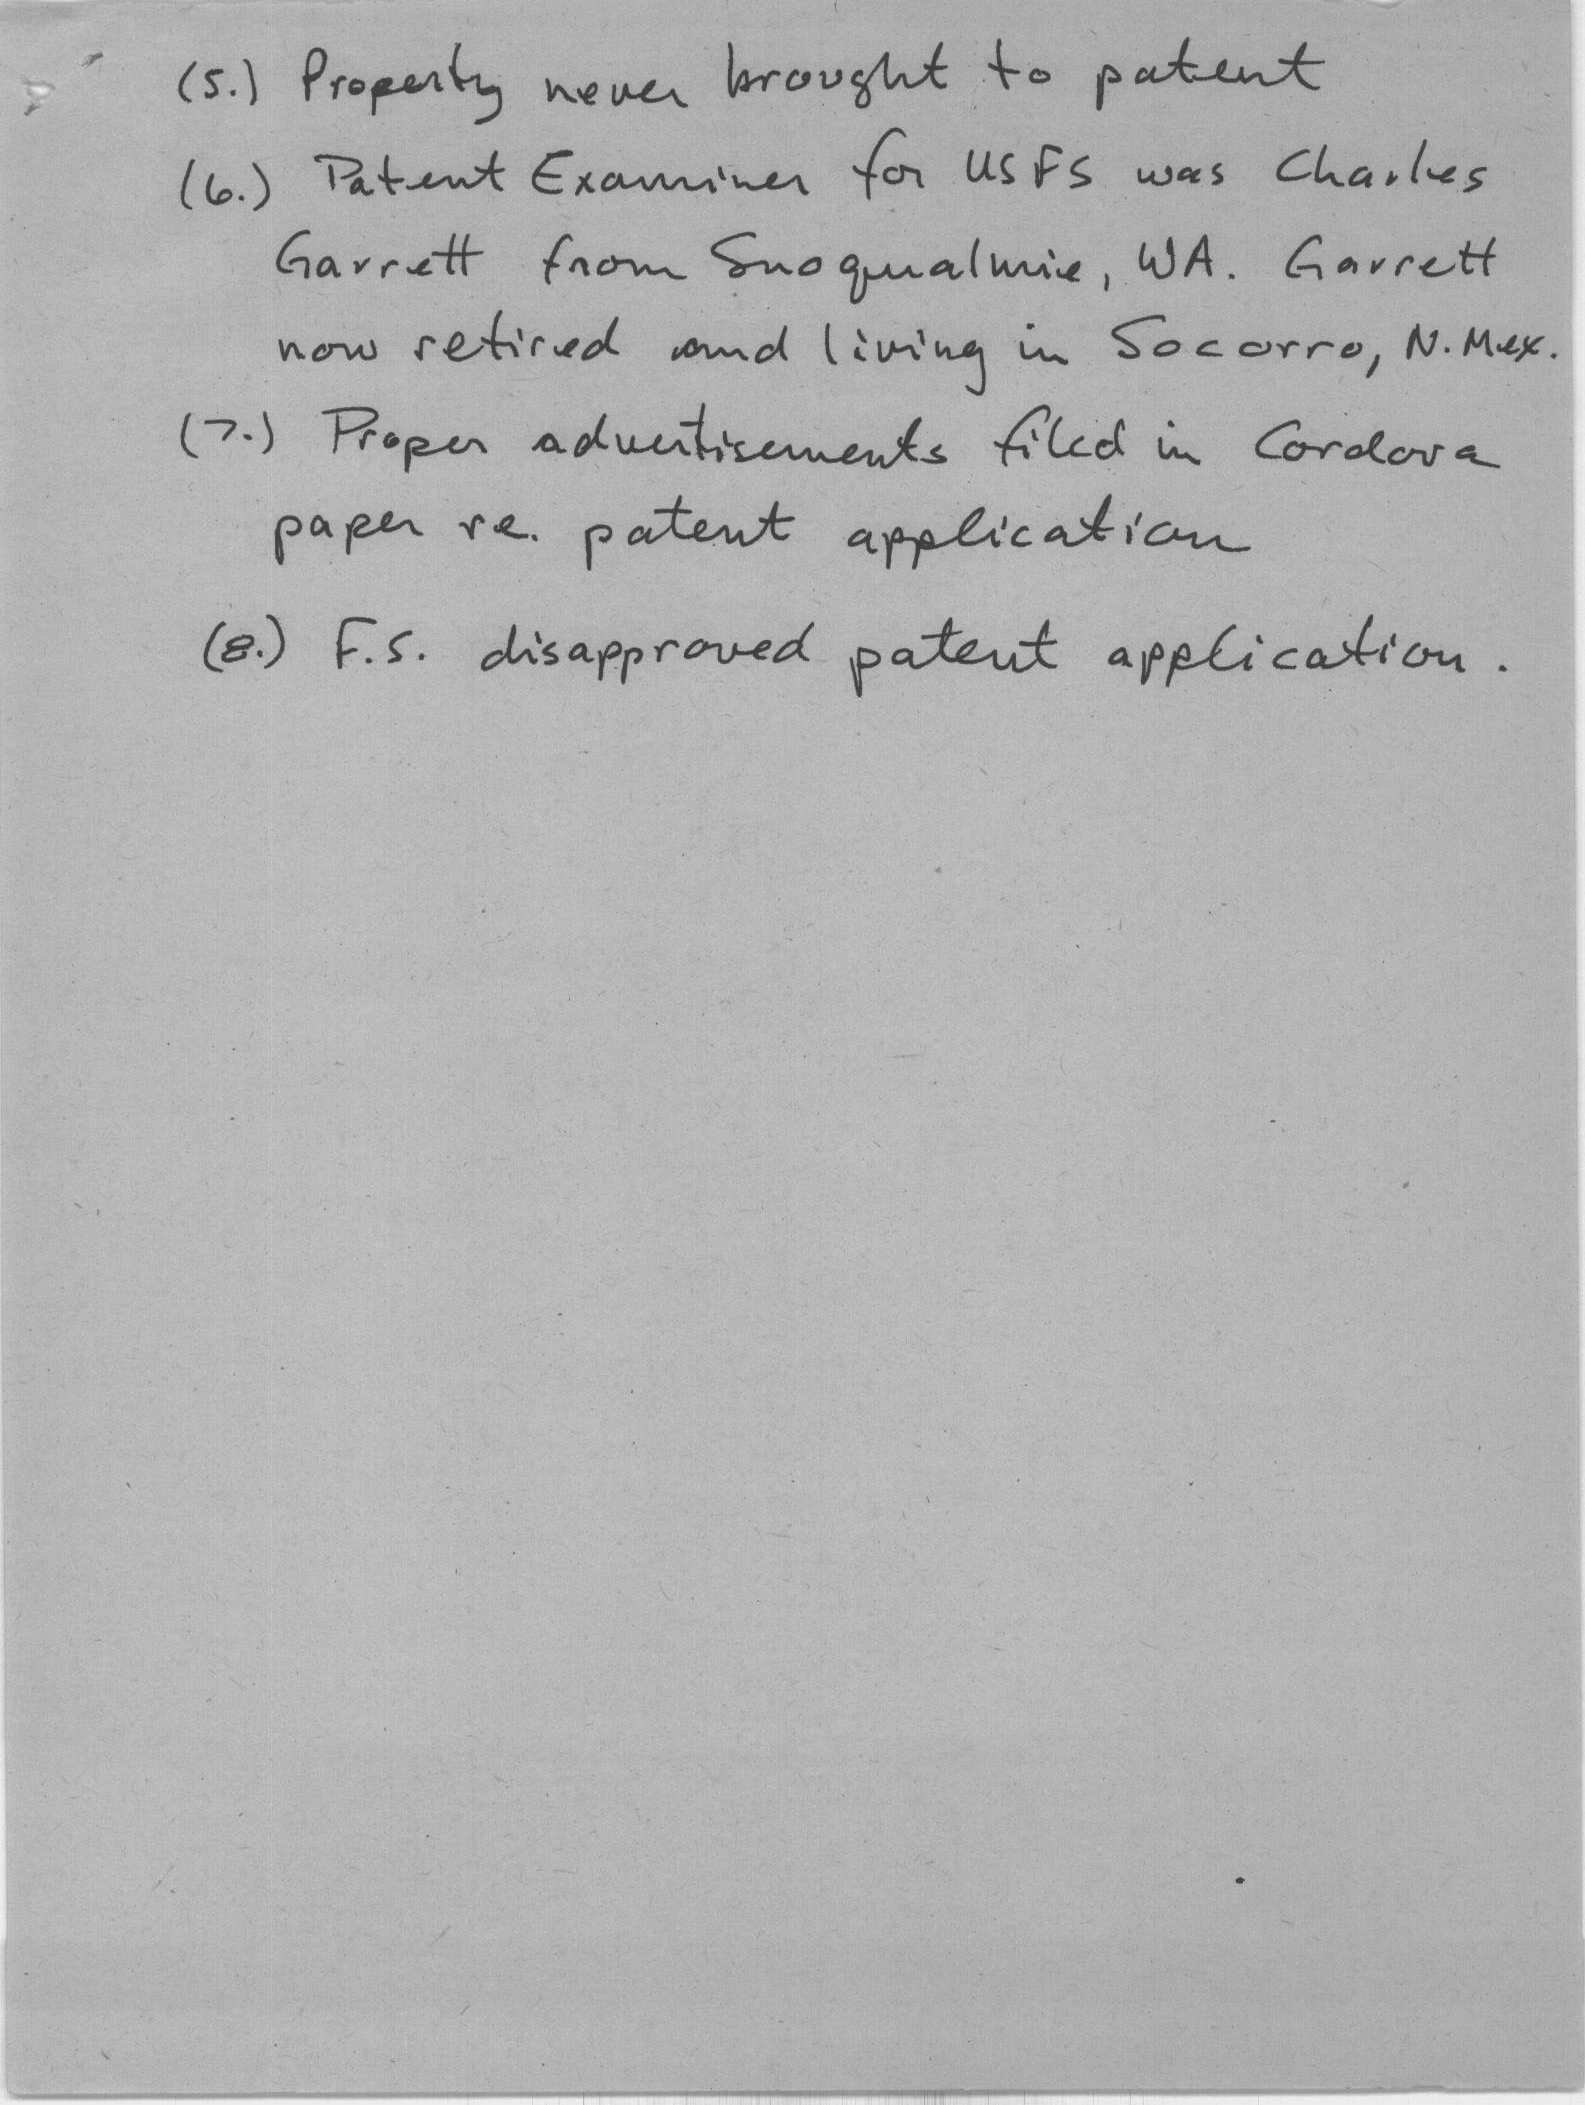 (5.) Property never brought to patent
(6.) Patent Examiner for USFS was Charles
Garrett from Snoqualmie, WA. Garrett
now retired and living in Socorro, N. Mex.
(7.) Proper advertisements filed in Cordova
paper re. patent application
(8.) F.S. disapproved patent application.